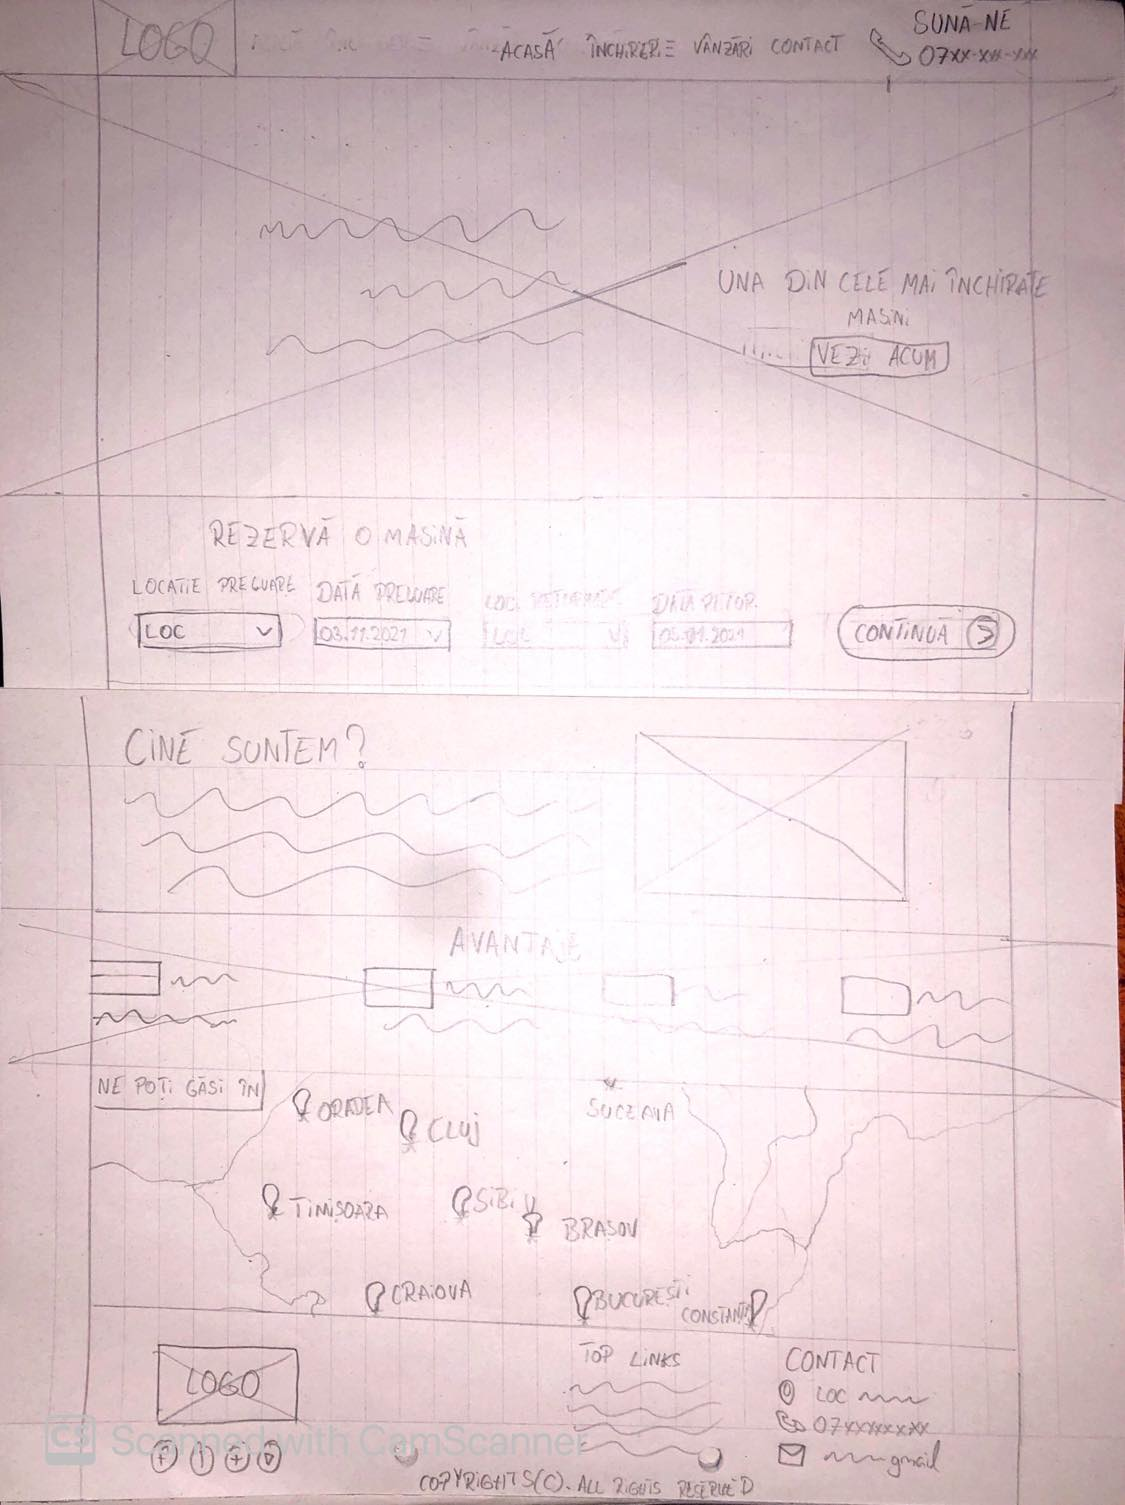 LOGO
ACASĂ ÎNCHIRERE VÂNZĂRI CONTACT
SUNĂ-NE
07xx-xxx-xxx
UNA DIN CELE MAI ÎNCHIRATE
MASINI
VEZI ACUM
REZERVĂ O MASINĂ
LOCATIE PRELUARE
DATĂ PRELUARE
DATA RETUR.
LOC
03.11.2021
LOC
05.01.2021
CONTINUĂ
CINE SUNTEM?
AVANTAJE
NE POȚI GĂSI ÎN
ORADEA
CLUJ
SUCEAVA
TIMIȘOARA
SIBIU
BRASOV
CRAIOVA
BUCUREȘTI
CONSTANTA
LOGO
TOP LINKS
CONTACT
LOC
07xxxxxxxx
gmail
CS Scanned with CamScanner
COPYRIGHTS(C). ALL RIGHTS RESERVED